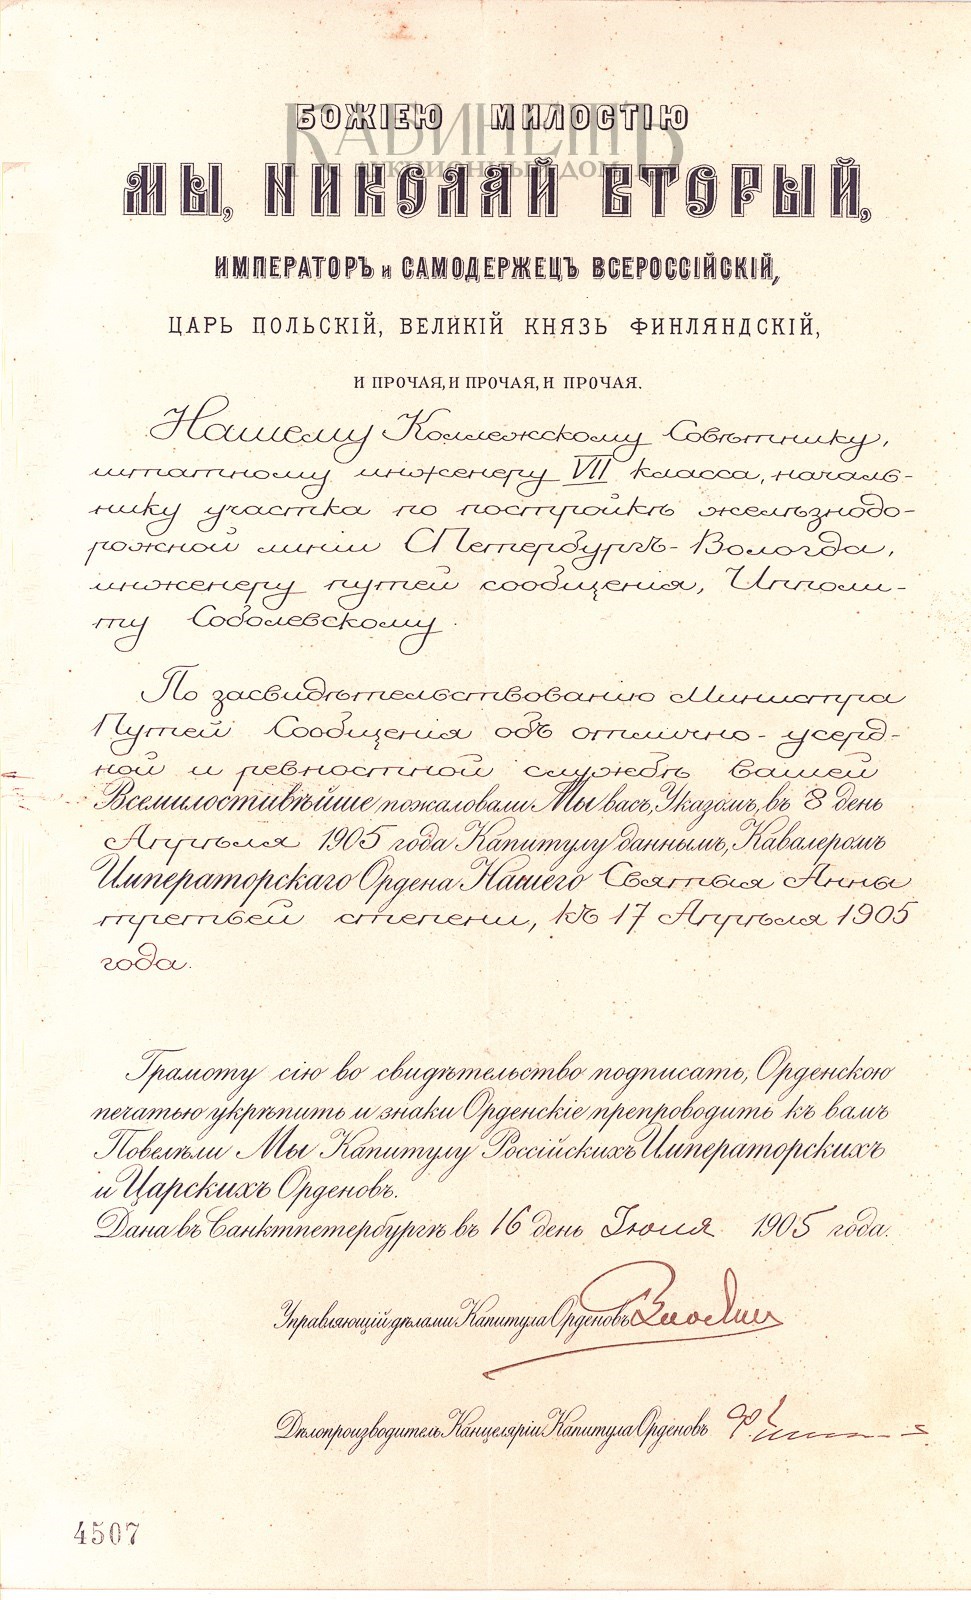 БОЖІЕЮ МИЛОСТІЮ
КАБИНЕТЪ
АУКЦИОННЫЙ ДОМ
МЫ, НИКОЛАЙ ВТОРЫЙ,
ИМПЕРАТОРЪ и САМОДЕРЖЕЦЪ ВСЕРОССІЙСКІЙ,
ЦАРЬ ПОЛЬСКІЙ, ВЕЛИКІЙ КНЯЗЬ ФИНЛЯНДСКІЙ,
И ПРОЧАЯ, И ПРОЧАЯ, И ПРОЧАЯ.
Нашему Коллежскому Совѣтнику,
штатному инженеру VII класса, началь-
нику участка по постройкѣ желѣзнодо-
рожной линіи СПетербургъ-Вологда,
инженеру путей сообщенія, Ипполи-
ту Соболевскому.
По засвидѣтельствованію Министра
Путей Сообщенія объ отлично-усерд-
ной и ревностной службѣ вашей
Всемилостивѣйше пожаловали Мы васъ, Указомъ, въ 8 день
Апрѣля 1905 года Капитулу даннымъ, Кавалеромъ
Императорскаго Ордена Нашего Святыя Анны
третьей степени, къ 17 Апрѣля 1905
года.
Грамоту сію во свидѣтельство подписать, Орденскою
печатью укрѣпить и знаки Орденскіе препроводить къ вамъ
Повелѣли Мы Капитулу Россійскихъ Императорскихъ
и Царскихъ Орденовъ.
Дана въ Санктпетербургѣ въ 16 день Іюля 1905 года.
Управляющій дѣлами Капитула Орденовъ
Дѣлопроизводитель Канцеляріи Капитула Орденовъ
4507